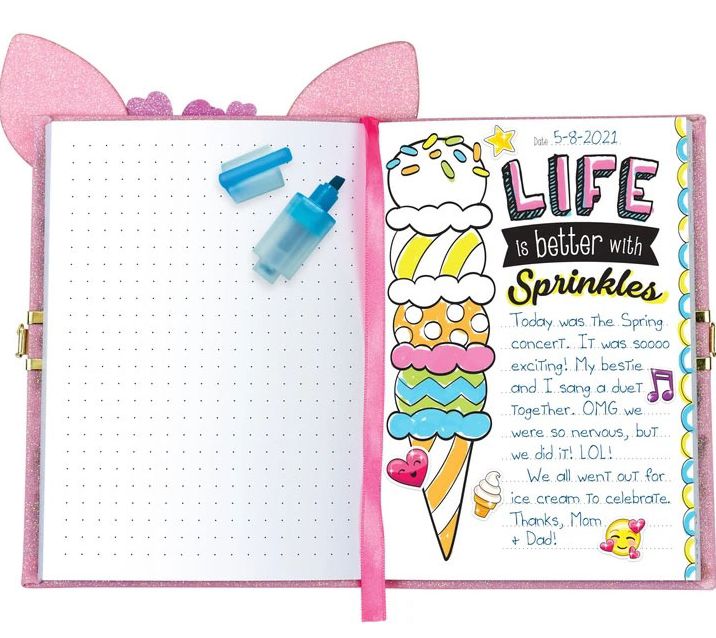 Date 5-8-2021
LIFE
is better with
Sprinkles
Today was the Spring
concert. It was soooo
exciting! My bestie
and I sang a duet
together. OMG we
were so nervous, but
we did it! LOL!
We all went out for
ice cream to celebrate.
Thanks, Mom
+ Dad!